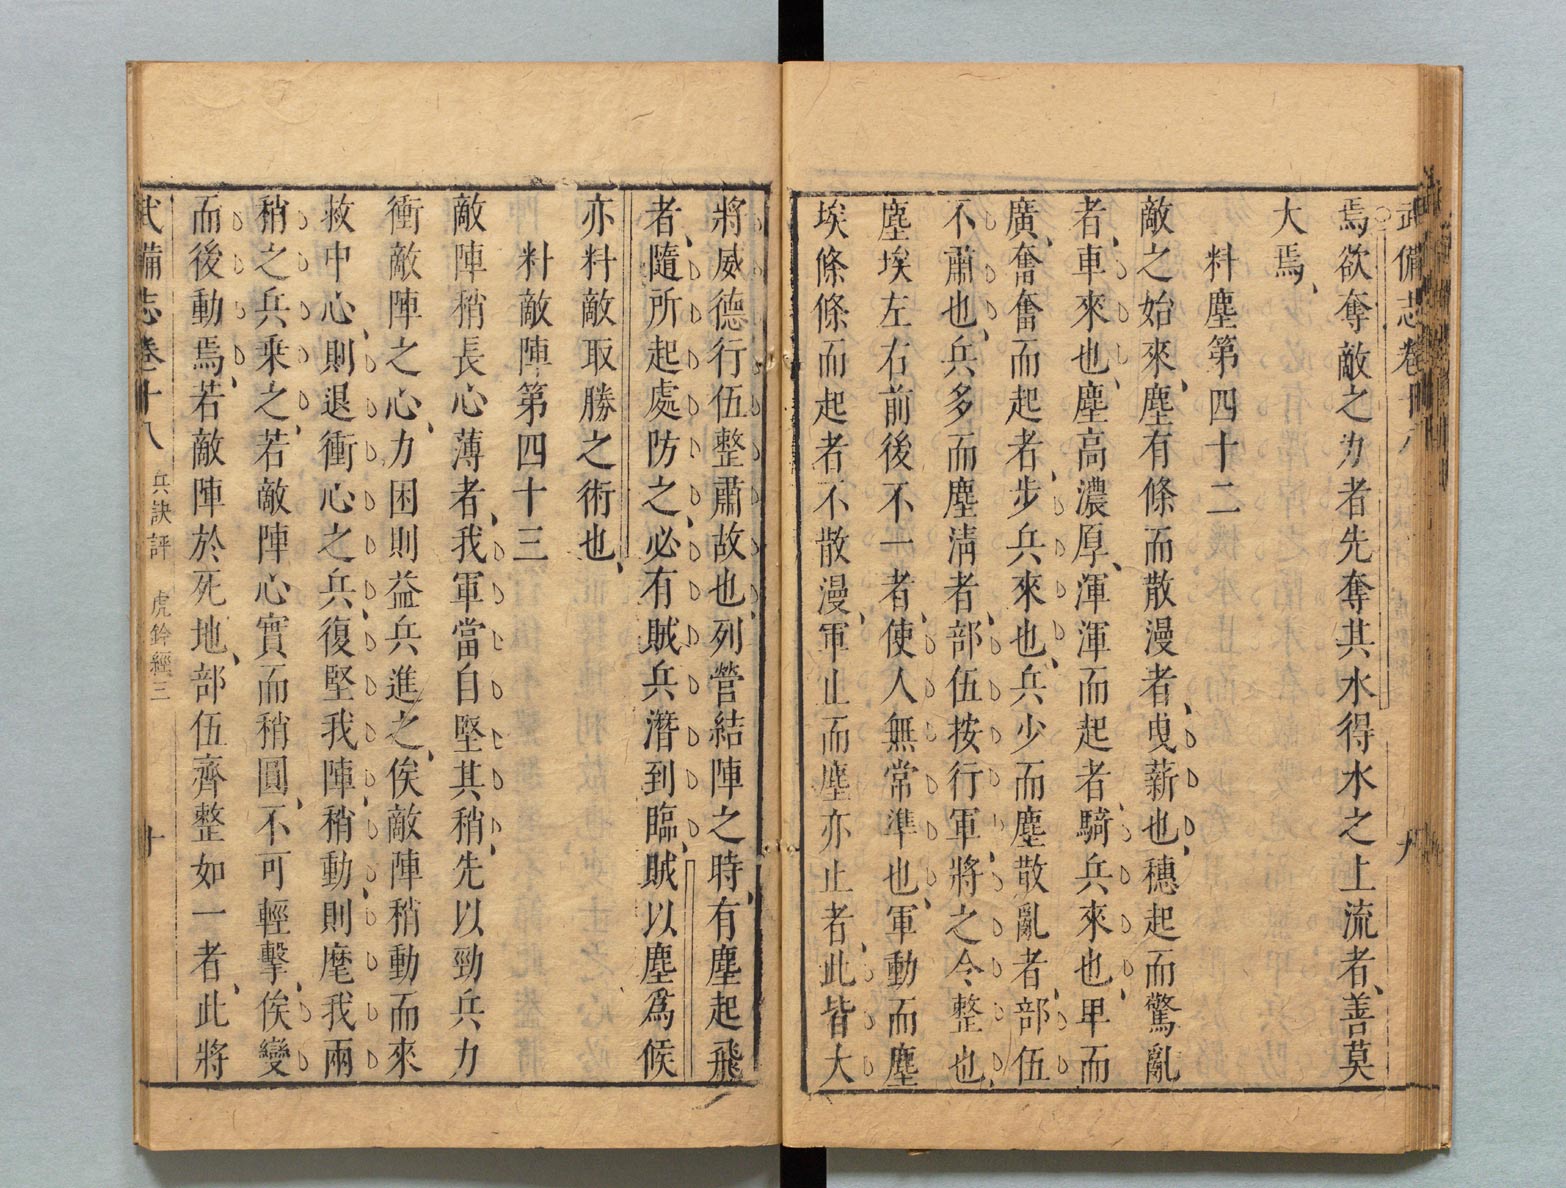 武備志卷十八 九
焉欲奪敵之力者先奪其水得水之上流者善莫
大焉
料塵第四十二
敵之始來塵有條而散漫者曳薪也穗起而驚亂
者車來也塵高濃厚渾渾而起者騎兵來也卑而
廣奮奮而起者步兵來也兵少而塵散亂者部伍
不肅也兵多而塵淸者部伍按行軍將之令整也
塵埃左右前後不一者使人無常準也軍動而塵
埃條條而起者不散漫軍止而塵亦止者此皆大
將威德行伍整肅故也列營結陣之時有塵起飛
者隨所起處防之必有賊兵潛到臨賊以塵爲候
亦料敵取勝之術也
料敵陣第四十三
敵陣稍長心薄者我軍當自堅其稍先以勁兵力
衝敵陣之心力困則益兵進之俟敵陣稍動而來
救中心則退衝心之兵復堅我陣稍動則麾我兩
稍之兵乗之若敵陣心實而稍圓不可輕擊俟變
而後動焉若敵陣於死地部伍齊整如一者此將
武備志卷十八 兵訣評 虎鈐經三 十